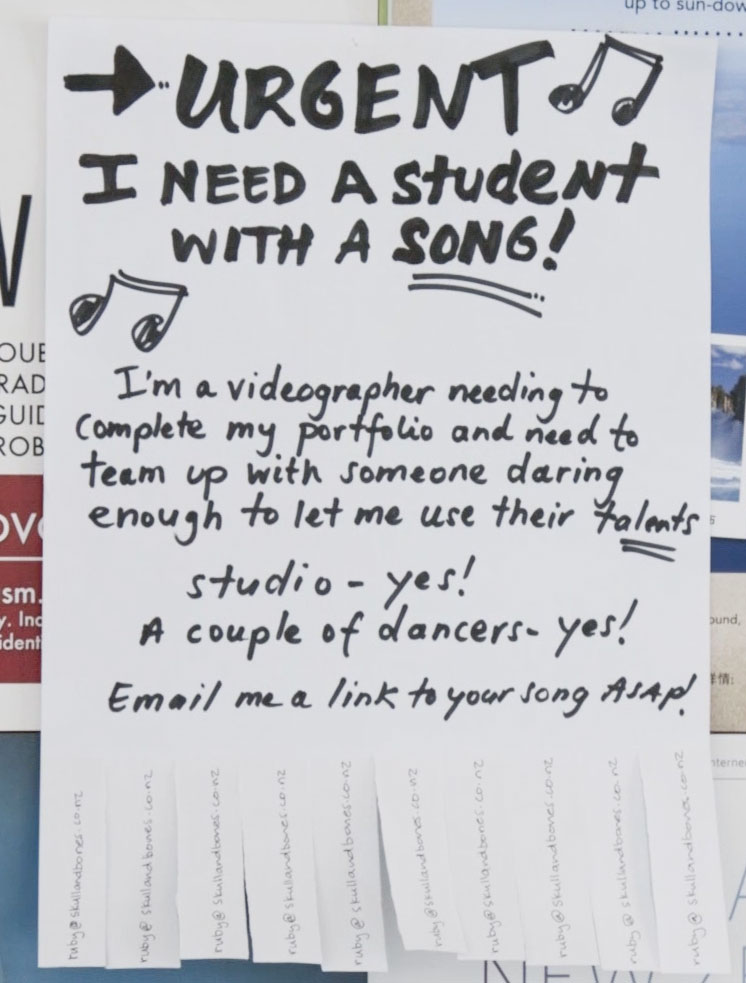 up to sun-dow
URGENT
I NEED A student
WITH A SONG!
I'm a videographer needing to
complete my portfolio and need to
team up with someone daring
enough to let me use their talents
studio - yes!
A couple of dancers- yes!
Email me a link to your song ASAP!
ruby@skullandbones.co.nz
ruby@skullandbones.co.nz
ruby@skullandbones.co.nz
ruby@skullandbones.co.nz
ruby@skullandbones.co.nz
ruby@skullandbones.co.nz
ruby@skullandbones.co.nz
ruby@skullandbones.co.nz
ruby@skullandbones.co.nz
ruby@skullandbones.co.nz
OUE
RAD
GUID
ROB
ove
sm.
y. Inc
ident
ound,
情:
nternet
A
NEW Z